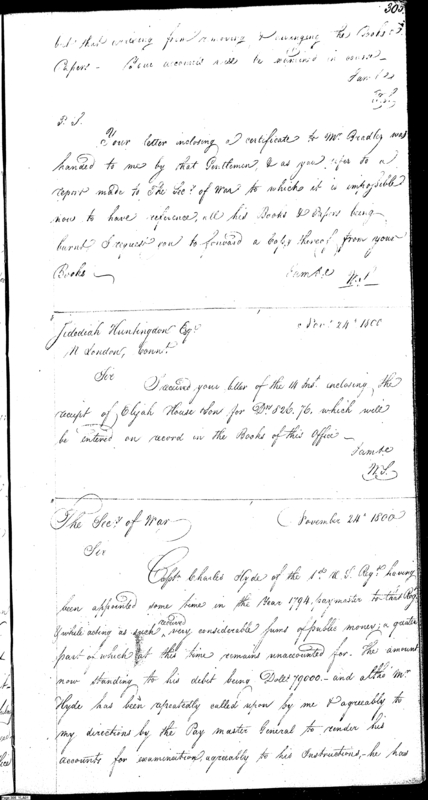 305
but that evening from removing & arranging the Books &
Papers - Some accounts must be in
I am &c
W.S.
P.S.
Your letter inclosing a certificate to Mr. Bradley was
handed to me by that Gentleman, & as you refer to a
report made to The Secy. of War to which it is impossible
now to have reference, all his Books & Papers being
burnt I request you to forward a Copy thereof from your
Books —
I am &c W.S.
Jedediah Huntingdon Esqr.
N London, Connt.
Novr. 24th 1800
Sir
I received your letter of the 14 Inst. inclosing the
receipt of Elijah House Son for Drs 826.76. which will
be entered on record in the Books of this Office —
I am &c
W.S.
The Secy. of War
November 24th 1800
Sir
Capt. Charles Hyde of the 1st U.S. Regt. having
been appointed some time in the Year 1794, paymaster to that Regt.
& while acting as such received very considerable sums of public money, a quarter
part of which at this time remains unaccounted for. The amount
now standing to his debit being Dolrs 79000. - and altho Mr.
Hyde has been repeatedly called upon by me & agreeably to
my directions by the Pay master General to render his
accounts for examination, agreeably to his Instructions, - he has